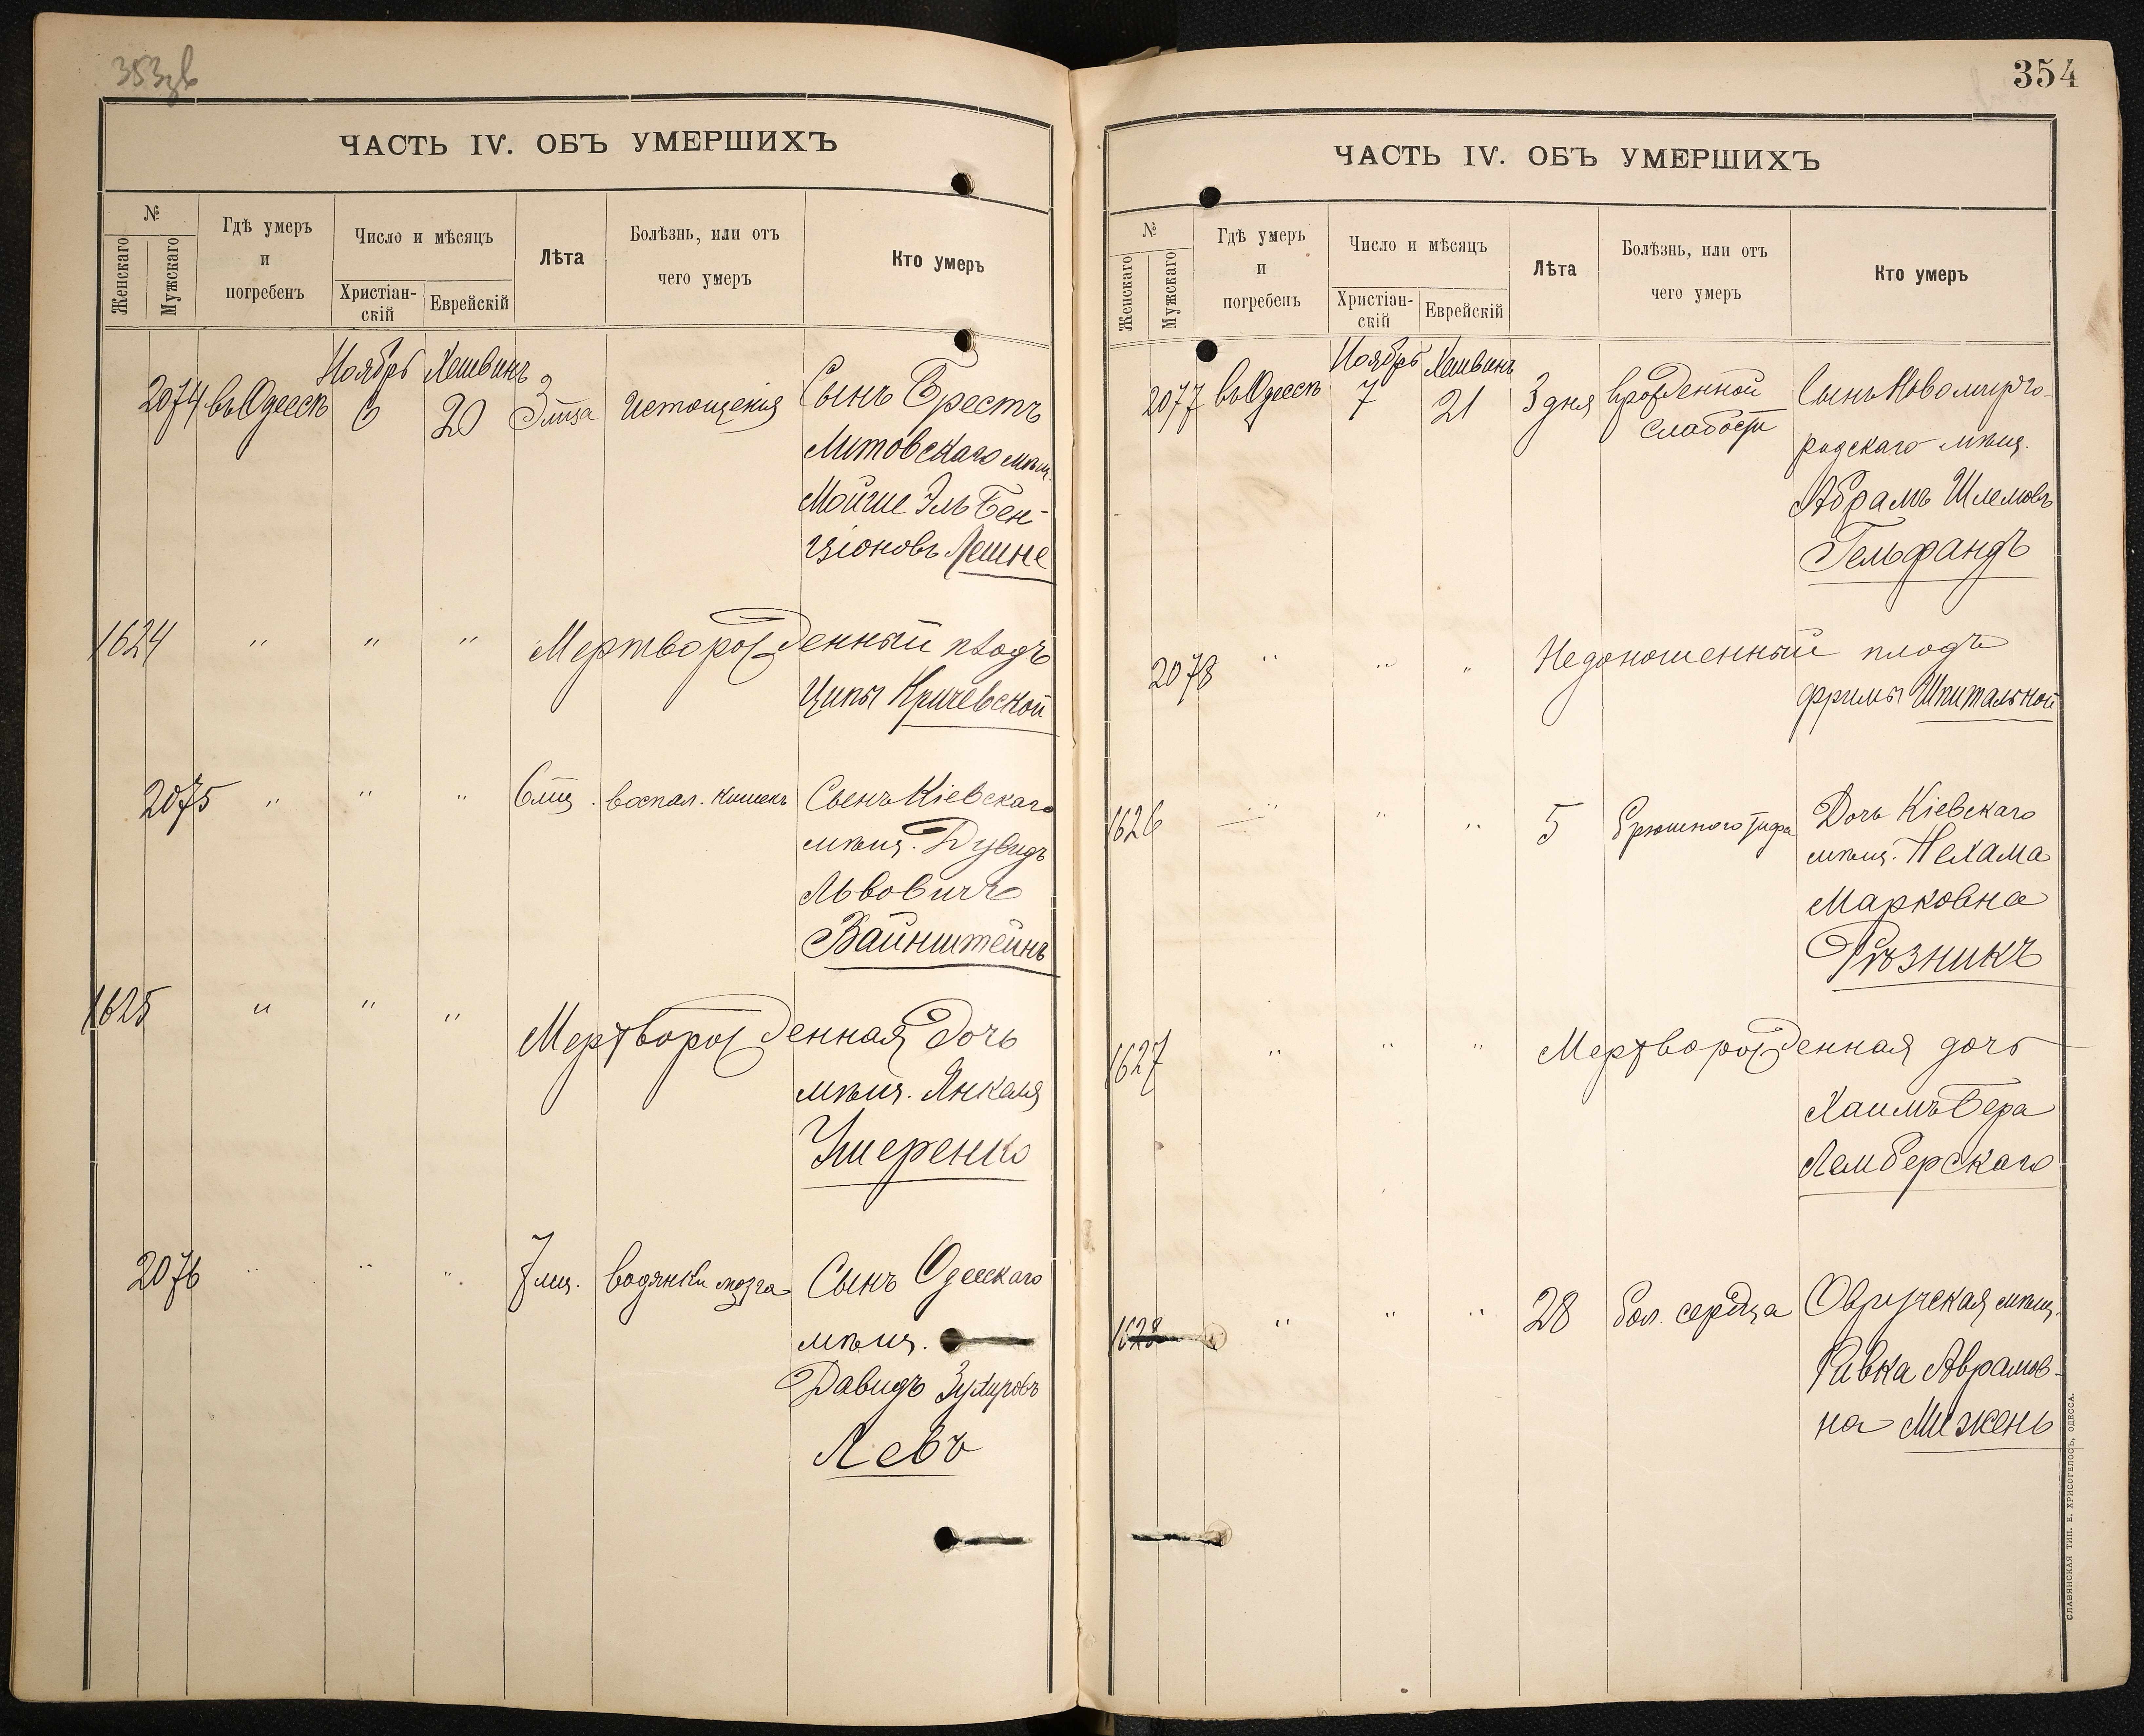 353 зв
ЧАСТЬ IV. ОБЪ УМЕРШИХЪ
№
Женскаго
Мужскаго
Гдѣ умеръ
и
погребенъ
Число и мѣсяцъ
Христіан-
скій
Еврейскій
Лѣта
Болѣзнь, или отъ
чего умеръ
Кто умеръ
Ноябрь Хешвинъ
2074 въ Одессѣ 6 20 3 мѣсяца Истощенія Сынъ Брестъ
Литовскаго мѣщ.
Мойше Эль Бен-
ціоновъ Лешне
1624 " " " Мертворожденный плодъ
Ципы Кричевской
2075 " " " 6 мѣс. воспал. кишекъ Сынъ Кіевскаго
мѣщ. Дувидъ
Львовичъ
Вайнштейнъ
1625 " " " Мертворожденная дочь
мѣщ. Янкеля
Ушеренко
2076 " " " 7 мѣс. водянки мозга Сынъ Одесскаго
мѣщ.
Давидъ
Левъ
354
ЧАСТЬ IV. ОБЪ УМЕРШИХЪ
№
Женскаго
Мужскаго
Гдѣ умеръ
и
погребенъ
Число и мѣсяцъ
Христіан-
скій
Еврейскій
Лѣта
Болѣзнь, или отъ
чего умеръ
Кто умеръ
Ноябрь Хешвинъ
2077 въ Одессѣ 7 21 3 дня врожденной Сынъ Новомирго-
слабости родскаго мѣщ.
Абрамъ Шлемовъ
Гельфандъ
2078 " " " Недоношенный плодъ
Фримы Шпитальной
1626 " " " 5 брюшного тифа Дочь Кіевскаго
мѣщ. Нехама
Марковна
Рѣзникъ
1627 " " " Мертворожденная дочь
Хаимъ Бера
Лемберскаго
1628 " " " 28 бол. сердца Овручская мѣщ.
Ривка Аврамов-
на Мижень
СЛАВЯНСКАЯ ТИП. Е. ХРИСОГЕЛОСЪ, ОДЕССА.